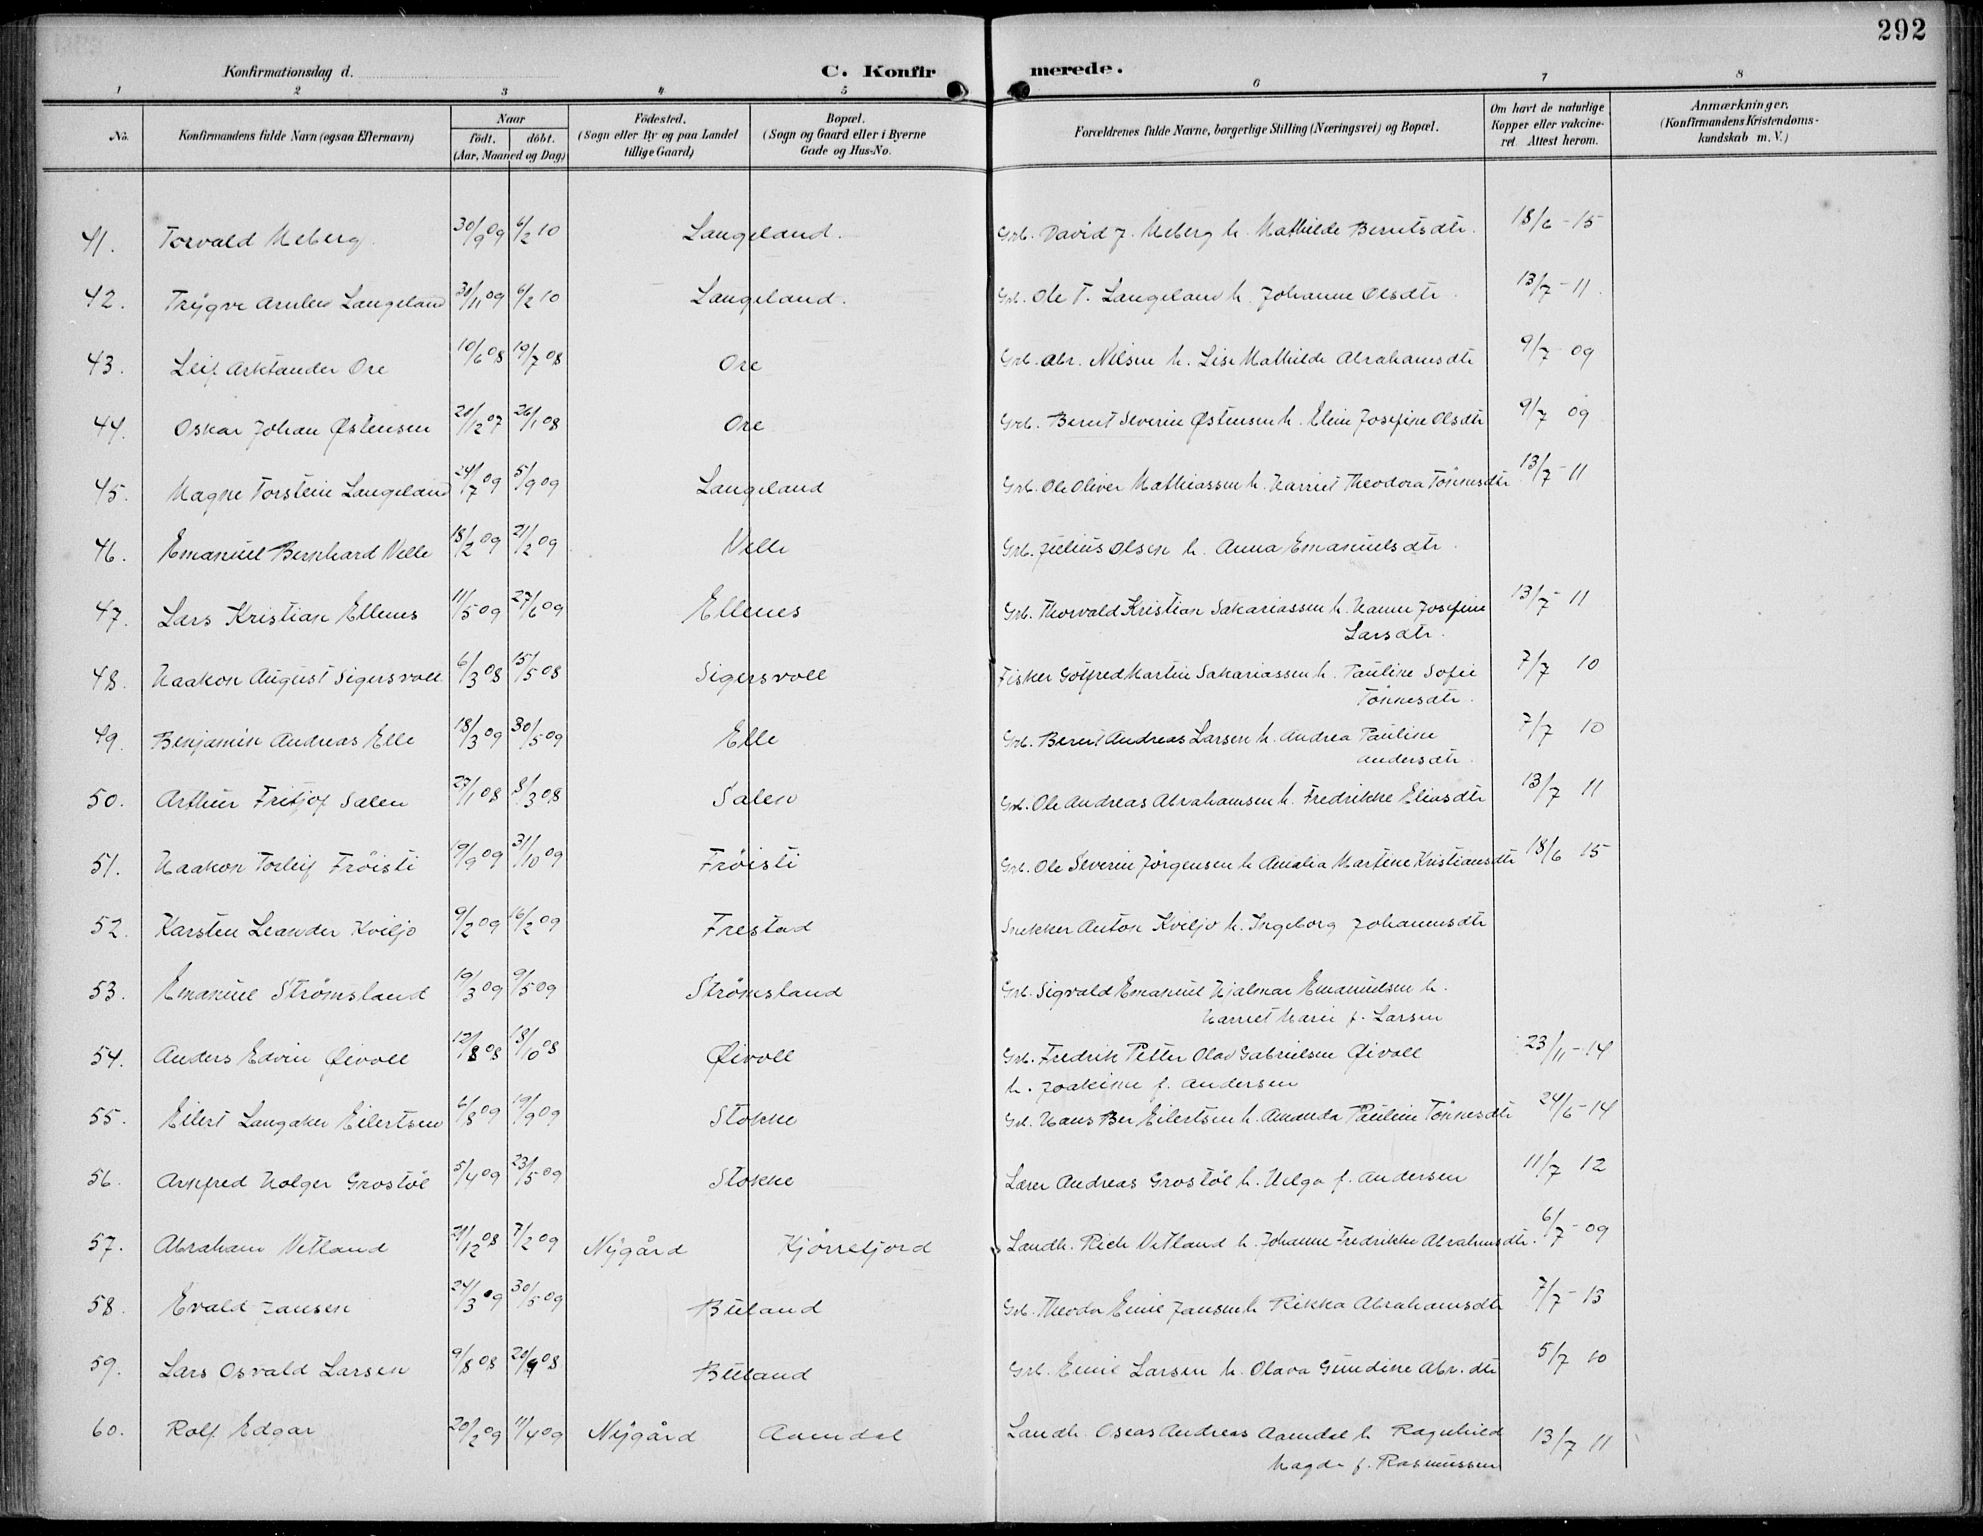 292
Konfirmationsdag d.
C. Konfirmerede.
1 2 3 4 5 6 7 8
No. Konfirmandens fulde Navn (ogsaa Efternavn) Naar født. døbt. (Aar, Maaned og Dag) Fødested. (Sogn eller By og paa Landet tillige Gaard) Bopæl. (Sogn og Gaard eller i Byerne Gade og Hus-No. Forældrenes fulde Navne, borgerlige Stilling (Næringsvei) og Bopæl. Om havt de naturlige Kopper eller vakcineret. Attest herom. Anmærkninger. (Konfirmandens Kristendomskundskab m. V.)
41. Torvald Meberg 30/9 09 6/2 10 Langeland. Grb. David J. Meberg h. Mathilde Berntsdtr. 18/6 - 15
42. Trygve Arnlev Langeland 30/11 09 6/2 10 Langeland. Grb. Ole T. Langeland h. Johanne Olsdtr. 13/7 - 11
43. Leif Arktander Ore 10/6 08 19/7 08 Ore Grb. Abr. Nilsen h. Lise Mathilde Abrahamsdtr 9/7 - 09
44. Oskar Johan Østensen 20/12 07 26/1 08 Ore Grb. Bernt Severin Østensen h. Eline Josefine Olsdtr 9/7 09
45. Magne Torstein Langeland 24/7 09 5/9 09 Langeland Grb. Ole Oliver Mathiassen h. Harriet Theodora Tønnesdtr 13/7 - 11
46. Emanuel Bernhard Velle 18/2 09 21/2 09 Velle Grb. Julius Olsen h. Anna Emanuelsdtr.
47. Lars Kristian Ellenes 11/5 09 27/6 09 Ellenes Grb. Thorvald Kristian Sakariassen h. Hanne Josefine
Larsdtr. 13/7 - 11
48. Haakon August Sigersvoll 6/3 08 15/5 08 Sigersvoll Fisker Gotfred Martin Sakariassen h. Pauline Sofie
Tønnesdtr. 7/7 10
49. Benjamin Andreas Elle 18/3 09 30/5 09 Elle Grb. Bernt Andreas Larsen h. Andrea Pauline
Andersdtr. 7/7 10
50. Arthur Fritjof Salen 27/1 08 8/3 08 Salen Grb. Ole Andreas Abrahamsen h. Fredrikke Eliasdtr 13/7 11
51. Haakon Torleif Frøisti 19/9 09 31/10 09 Frøisti Grb. Ole Severin Jørgensen h. Amalia Martine Kristiansdtr 18/6 15
52. Karsten Leander Kviljo 9/2 09 16/2 09 Frestad Snekker Anton Kviljo h. Ingeborg Johannesdtr
53. Emanuel Strømsland 19/3 09 9/5 09 Strømsland Grb. Sigvald Emanuel Hjalmar Emanuelsen h.
Harriet Marie f. Larsen
54. Anders Edvin Øivoll 12/8 08 18/10 08 Øivoll Grb. Fredrik Petter Olav Gabrielsen Øivoll
h. Joakime f. Andersen 23/11 - 14
55. Eilert Langaker Eilertsen 6/8 09 19/9 09 Stokke Grb. Hans Ber Eilertsen h. Amanda Pauline Tønnesdtr 24/6 - 14
56. Arnfred Holger Grostøl 5/4 09 23/5 09 Stokke Lærer Andreas Grostøl h. Helga f. Andersen 11/7 12
57. Abraham Vetland 21/12 08 7/2 09 Nygård Kjørrefjord Landh. Rich Vetland h. Johanne Fredrikke Abrahamsdtr. 6/7 - 09
58. Evald Jansen 24/3 09 30/5 09 Buland Grb. Theodor Emil Jansen h. Rikka Abrahamsdtr 7/7 - 13
59. Lars Osvald Larsen 9/8 08 20/9 08 Buland Grb. Emil Larsen h. Olava Gundine Abr.dtr 5/7 10
60. Rolf Edgar 20/2 09 11/4 09 Nygård Aamdal Landh. Oseas Andreas Aamdal h Ragnhild
Magda f. Rasmussen 13/7 11